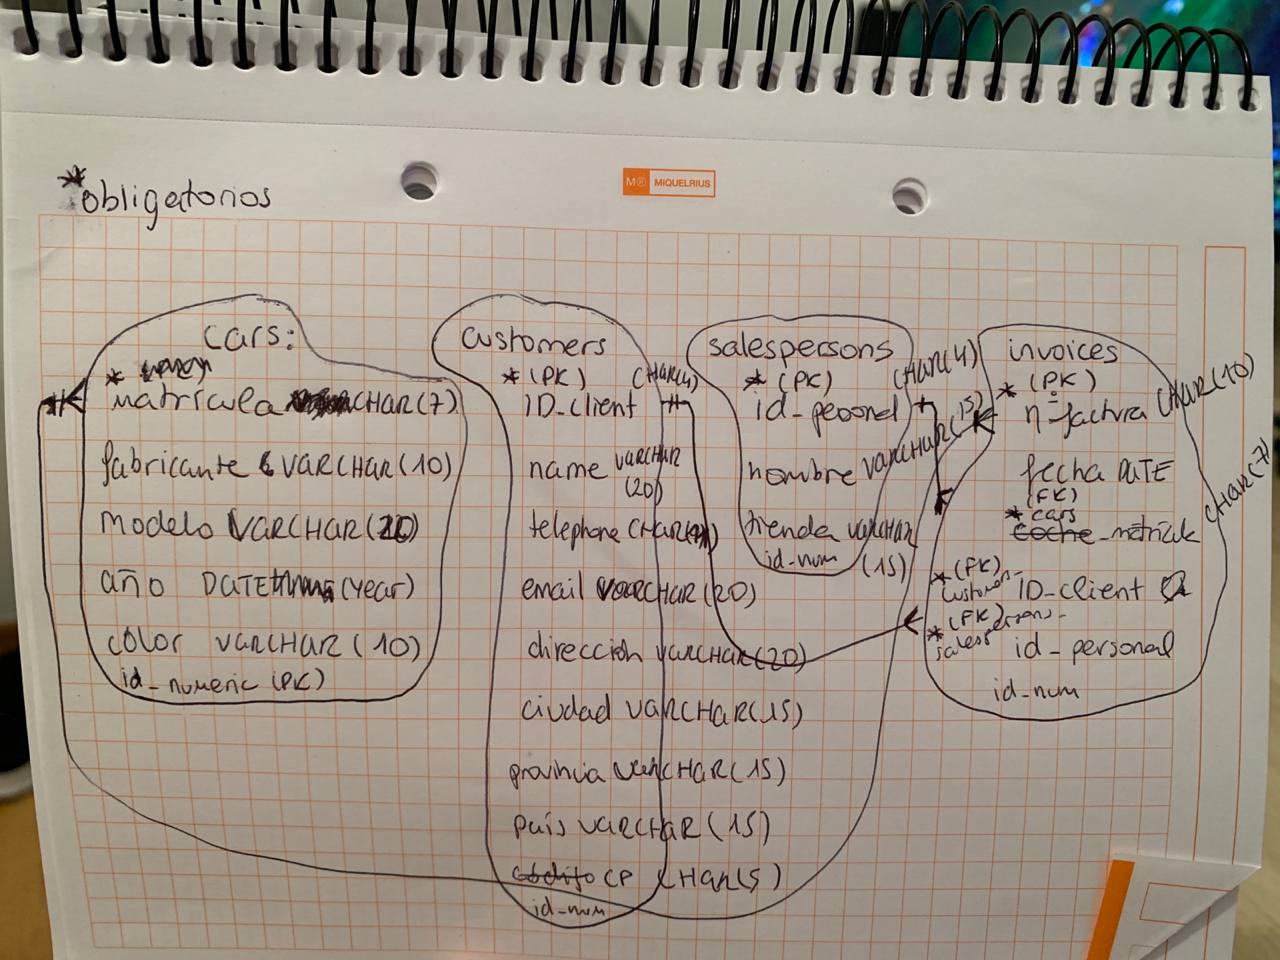 *obligatorios
M® MIQUELRIUS
cars:
*
matrícula CHAR(7)
fabricante VARCHAR(10)
modelo VARCHAR(20)
año DATE (year)
color VARCHAR (10)
id_numeric (PK)
customers
*(PK) CHAR(4)
ID_client
name VARCHAR
(20)
telephone CHAR
email VARCHAR(20)
dirección VARCHAR(20)
ciudad VARCHAR(15)
provincia VARCHAR(15)
país VARCHAR (15)
CP CHAR(5)
id_num
salespersons
*(PK) CHAR(4)
id_personal
nombre VARCHAR(15)
tienda VARCHAR
id_num (15)
invoices
*(PK)
nº_factura CHAR(10)
fecha DATE
(FK)
*cars
coche_matrícula CHAR(7)
*(FK)
customers_ID_client
*(FK)
salespersons_
id_personal
id_num